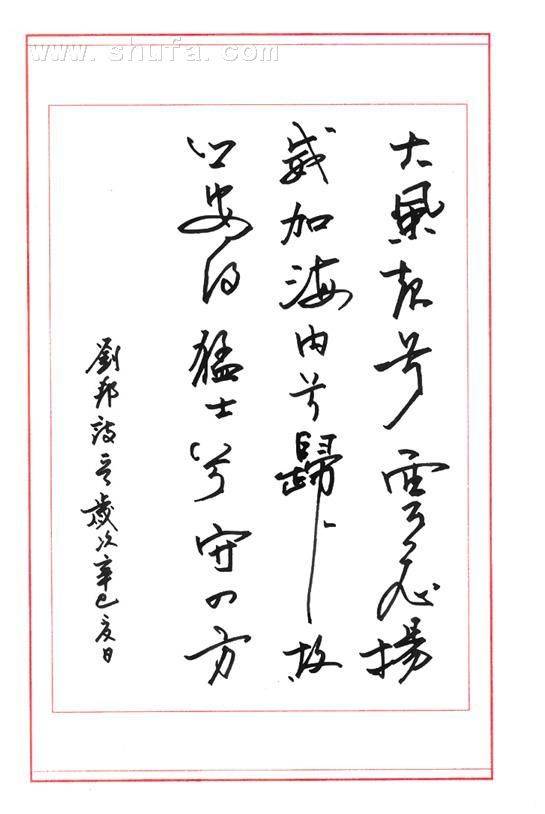 www.shufa.com
大風起兮雲飛揚
威加海内兮歸故
鄉安得猛士兮守四方
劉邦詩歲次辛巳夏日